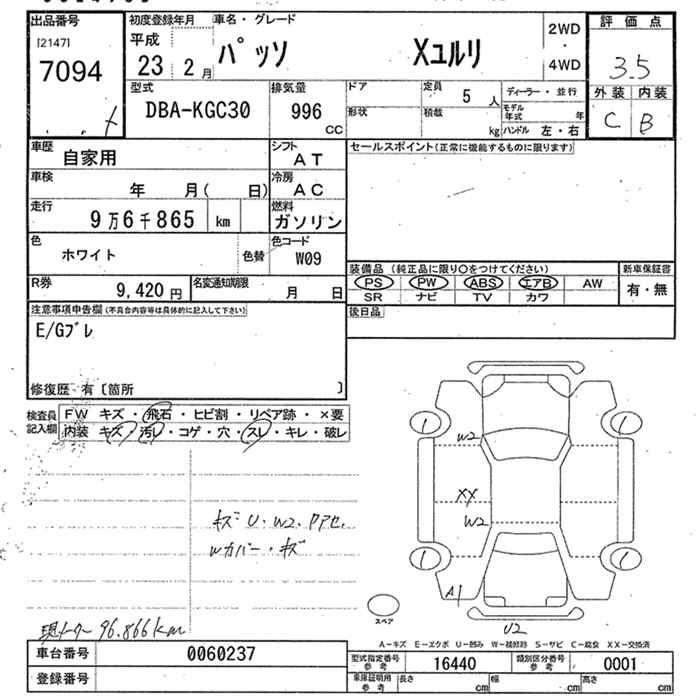 出品番号
[2147]
7094
初度登録年月
平成
23 2月
車名・グレード
パッソ
Xユルリ
2WD
・
4WD
評価点
3.5
外装 内装
C B
型式
DBA-KGC30
排気量
996
CC
ドア
定員
5人
形状
積載
kg
ディーラー・並行
モデル年式
年
ハンドル 左・右
車歴
自家用
シフト
AT
車検
年 月( 日)
冷房
AC
走行
9万6千865 km
燃料
ガソリン
セールスポイント(正常に機能するものに限ります)
色
ホワイト
色替
色コード
W09
R券
9,420円
名変通知期限
月 日
装備品 (純正品に限り○をつけてください)
PS PW ABS エアB AW
SR ナビ TV カワ
新車保証書
有・無
後日品
注意事項申告欄(不具合内容等は具体的に記入して下さい)
E/Gブレ
修復歴・有〔箇所 〕
検査員記入欄
FW キズ・飛石・ヒビ割・リペア跡・×要
内装 キズ・汚レ・コゲ・穴・スレ・キレ・破レ
W2
XX
W2
A1
U2
キズ U・W2、
Wカバー・キズ
現メーター 96.866km
スペア
A-キズ E-エクボ U-凹み W-補修跡 S-サビ C-腐食 XX-交換済
車台番号
0060237
登録番号
型式指定番号
参考
16440
類別区分番号
参考
0001
車庫証明用
参考
長さ cm
幅 cm
高さ cm